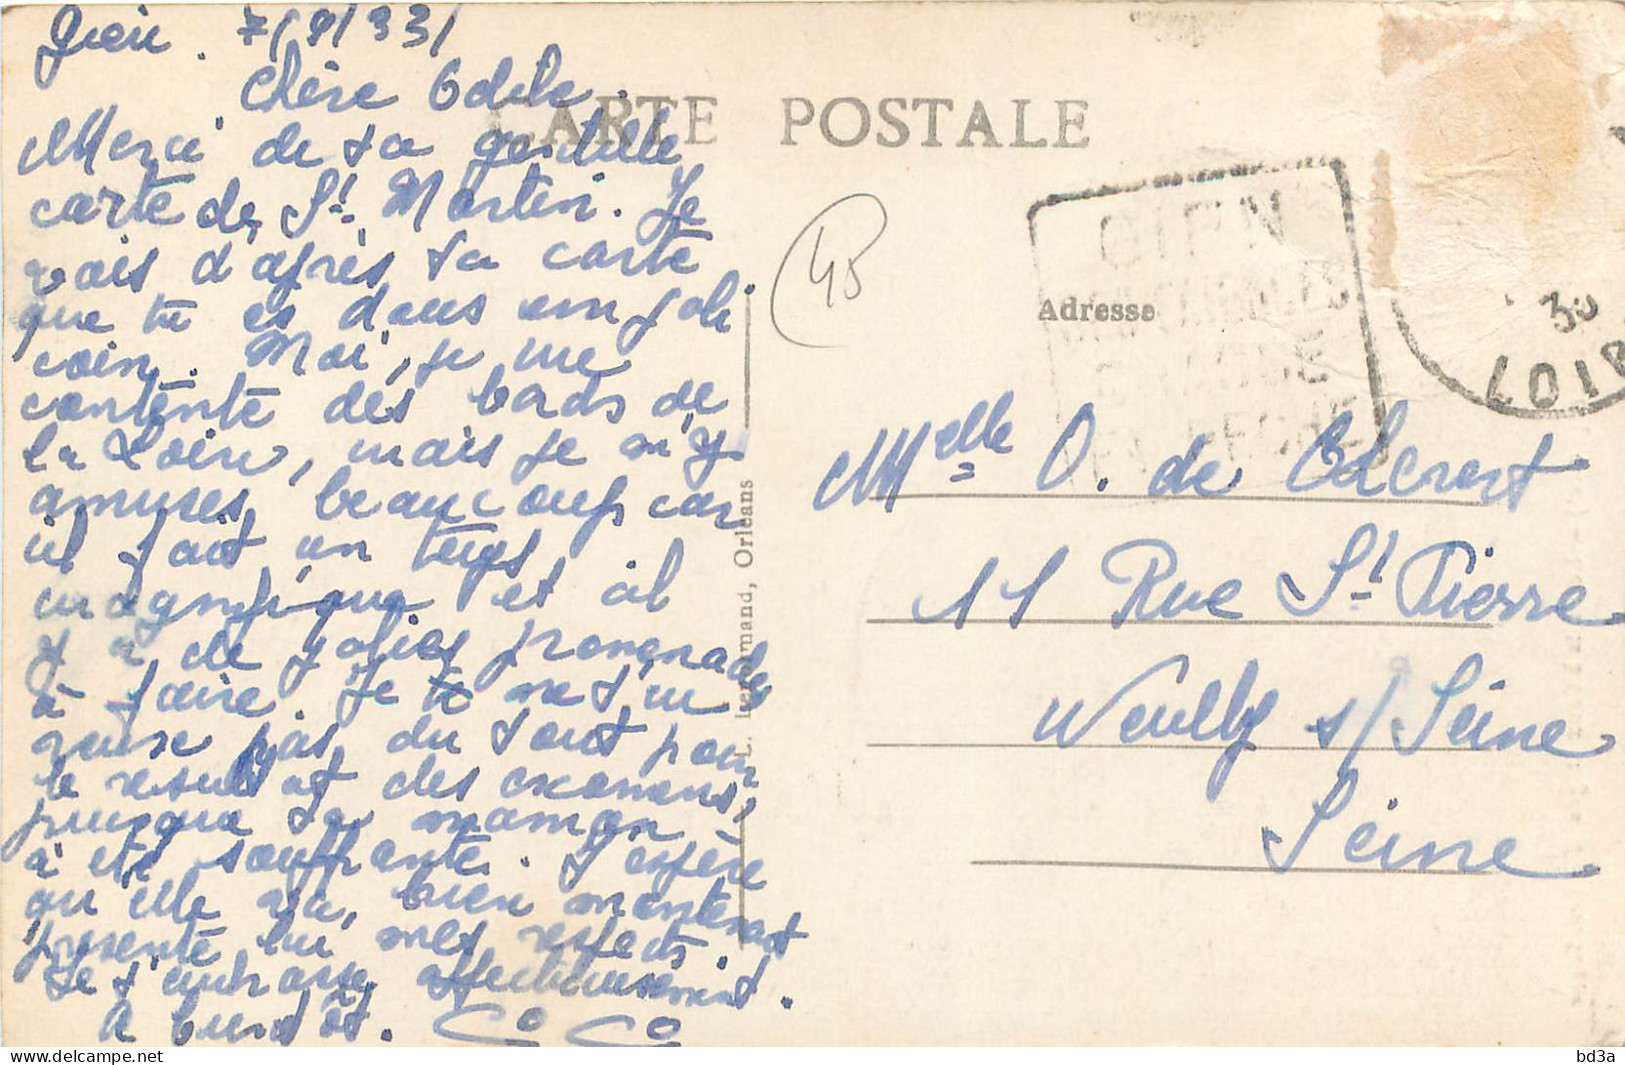 Gien. 7/8/33/
Chère Odile.
CARTE POSTALE
Merci de ta gentille
carte de St Martin. Je
vois d'après ta carte
que tu es dans un joli
coin. Moi, je me
contente des bords de
la Loire, mais je m'y
amuse beaucoup car
il fait un temps
magnifique et il
y a de jolies promenades
à faire. Je ne t'en
veux pas du tout pour
le resultat des examens,
puisque ta maman
a été souffrante. J'espère
qu'elle va bien maintenant
presente lui mes respects.
Je t'embrasse affectueusement.
A bientôt. CoCo
L. Lenormand, Orléans
48
GIEN
LOIR
Adresse
Melle O. de
11 Rue St Pierre
Neuilly s/Seine
Seine
delcampe.net
bd3a